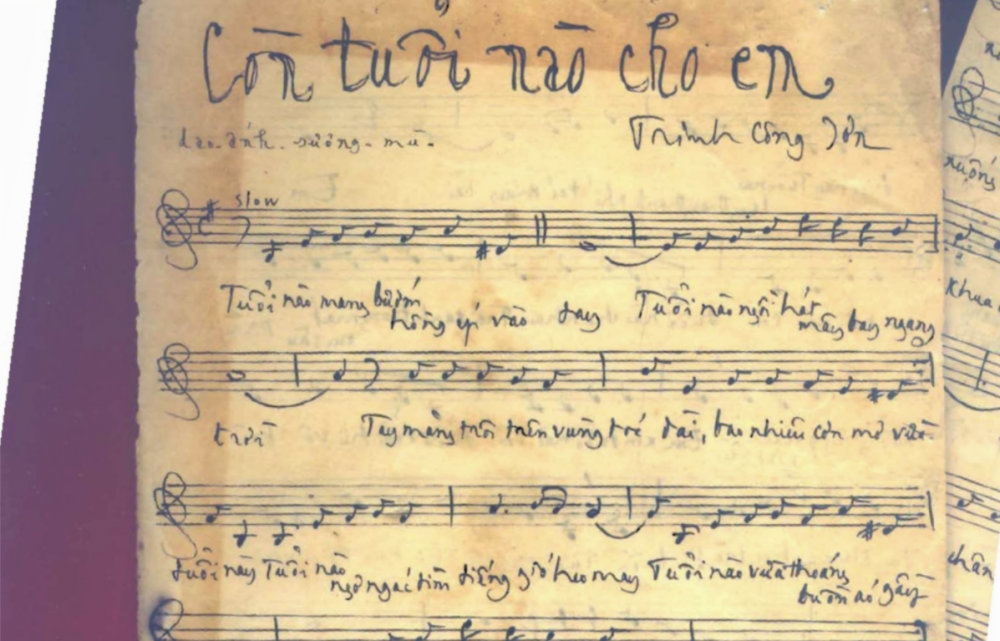 Còn tuổi nào cho em
dao. ánh. sương. mù.
Trịnh Công Sơn
slow
Tuổi nào mang bướm hồng ép vào tay Tuổi nào ngồi hát mây bay ngang
trời Tay măng trôi trên vùng tóc dài, bao nhiêu cơn mơ vừa
tuổi này Tuổi nào ngơ ngác tìm tiếng gió heo may Tuổi nào vừa thoáng buồn áo gầy
Khua
chân